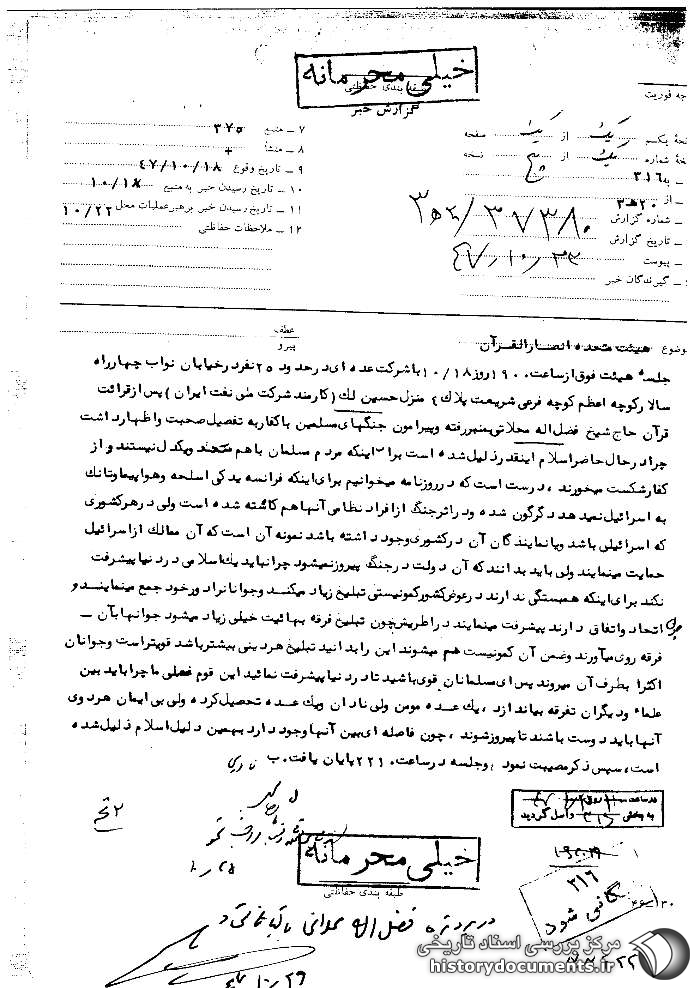 خیلی محرمانه
طبقه بندی حفاظتی
گزارش خبر
جه فوریت
۷ ـ منبع ۳۷۵
۸ ـ منشأ +
۹ ـ تاریخ وقوع ۴۷/۱۰/۱۸
۱۰ ـ تاریخ رسیدن خبر به منبع ۱۰/۱۸
۱۱ ـ تاریخ رسیدن خبر برهبر عملیات محل ۱۰/۲۲
۱۲ ـ ملاحظات حفاظتی
نحهٔ یکسم یک از یک صفحه
خهٔ شماره یک از پنج نسخه
ـ به ۳۱۶
ـ از ۲۰ه۳
ـ شماره گزارش ۳۷۳۸۰/
ـ تاریخ گزارش
ـ پیوست ۴۷/۱۰/۲۲
ـ گیرندگان خبر
عطف
پیرو
وضوع هیئت متحده انصارالقرآن
جلسهٔ هیئت فوق از ساعت ۱۹۰۰ روز ۱۰/۱۸ با شرکت عده ای در حدود ۲۵ نفر در خیابان نواب چهارراه
سالار کوچه اعظم کوچه فرعی شریعت پلاک ۴ منزل حسین لک (کارمند شرکت ملی نفت ایران) پس از قرائت
قرآن حاج شیخ فضل اله محلاتی بمنبر رفته و پیرامون جنگهای مسلمین با کفار به تفصیل صحبت و اظهار داشت
چرا در حال حاضر اسلام اینقدر ذلیل شده است برای اینکه مردم مسلمان با هم متحد و یکدل نیستند و از
کفار شکست میخورند ، درست است که در روزنامه میخوانیم برای اینکه فرانسه یدکی اسلحه و هواپیما و تانک
به اسرائیل نمیدهد دگرگون شده و در اثر جنگ از افراد نظامی آنها هم کاسته شده است ولی در هر کشوری
که اسرائیلی باشد و یا نمایندگان آن در کشوری وجود داشته باشد نمونه آن است که آن ممالک از اسرائیل
حمایت مینمایند ولی باید بدانند که آن دولت در جنگ پیروز نمیشود چرا نباید یک اسلامی در دنیا پیشرفت
نکند برای اینکه همبستگی ندارند در عوض کشور کمونیستی تبلیغ زیاد میکند و جوانان را دور خود جمع مینمایند و
چون اتحاد و اتفاق دارند پیشرفت مینمایند در اطریش چون تبلیغ فرقه بهائیت خیلی زیاد میشود جوانها بآن ـ
فرقه روی میآورند و ضمن آن کمونیست هم میشوند این را بدانید تبلیغ هر دینی بیشتر باشد قویتر است و جوانان
اکثرا بطرف آن میروند پس ای مسلمانان قوی باشید تا در دنیا پیشرفت نمائید این قوم فعلی ما چرا باید بین
علماء و دیگران تفرقه بیاندازد ، یک عده مومن ولی نادان و یک عده تحصیل کرده ولی بی ایمان هر دوی
آنها باید دوست باشند تا پیروز شوند ، چون فاصله ای بین آنها وجود دارد بهمین دلیل اسلام ذلیل شده
است ، سپس ذکر مصیبت نمود و جلسه در ساعت ۲۲۱۰ پایان یافت. ب نادری
به بخش ۳۱۶ واصل گردید
خیلی محرمانه
طبقه بندی حفاظتی
۱۰/۲۵
۳۱۶
در پرونده فضل اله محلاتی بایگانی شود
مرکز بررسی اسناد تاریخی
historydocuments.ir